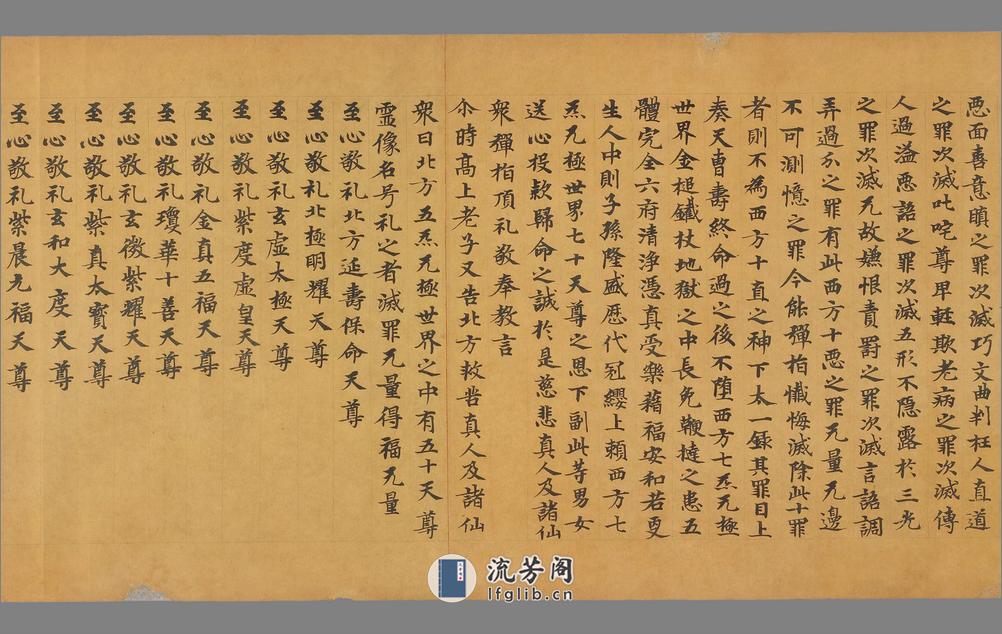 惡面毒意瞋之罪次滅巧文曲判枉人直道
之罪次滅吐咤尊卑輕欺老病之罪次滅傳
人過溢惡詺之罪次滅五形不隱露於三光
之罪次滅无故嫌恨責罰之罪次滅言詺調
弄過尒之罪有此西方十惡之罪无量无邊
不可測憶之罪今能彈指懺悔滅除此十罪
者則不為西方十直之神下太一錄其罪目上
奏天曹壽終命過之後不堕西方七炁无極
世界金槌鐵杖地獄之中長免鞭撻之患五
體完全六府清浄憑真受樂藉福安和若更
生人中則子孫隆盛歷代冠纓上賴西方七
炁无極世界七十天尊之恩下副此等男女
送心投款歸命之誠於是慈悲真人及諸仙
衆彈指頂礼敬奉教言
尒時髙上老子又告北方救苦真人及諸仙
衆曰北方五炁无極世界之中有五十天尊
霊像名号礼之者滅罪无量得福无量
至心敬礼北方延壽保命天尊
至心敬礼北極明耀天尊
至心敬礼玄虛太極天尊
至心敬礼紫度虛皇天尊
至心敬礼金真五福天尊
至心敬礼瓊華十善天尊
至心敬礼玄微紫耀天尊
至心敬礼紫真太寳天尊
至心敬礼玄和大度天尊
至心敬礼紫晨元福天尊
流芳阁
lfglib.cn